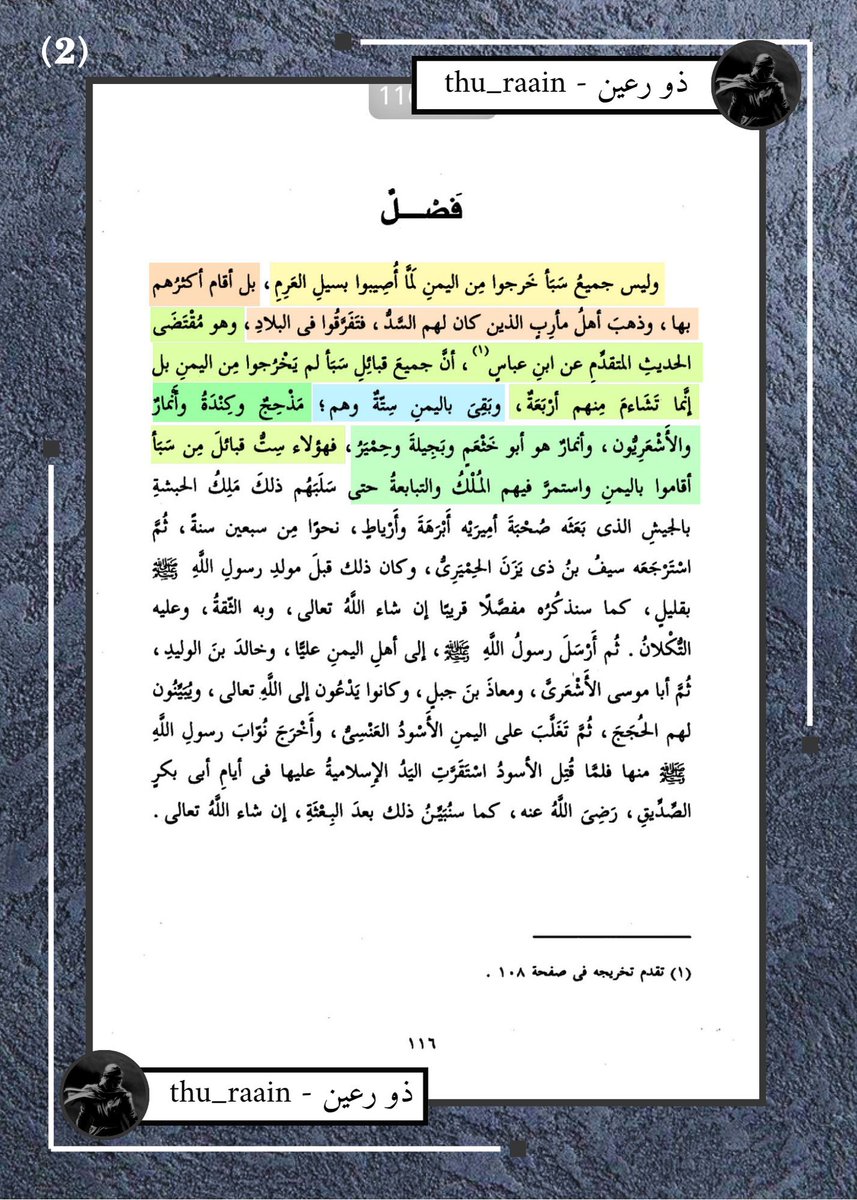 (2)
thu_raain - ذو رعين
116
فَصْــلٌ
وليس جميعُ سَبَأ خَرجوا مِن اليمنِ لَمَّا أُصِيبوا بسيلِ العَرِمِ ، بل أقام أكثرُهم
بها ، وذهبَ أهلُ مأرِبٍ الذين كان لهم السَّدُّ ، فتَفَرَّقُوا فى البلادِ ، وهو مُقْتَضَى
الحديثِ المتقدِّمِ عن ابنِ عباسٍ(١) ، أنَّ جميعَ قبائلِ سَبَأ لم يَخْرُجوا مِن اليمنِ بل
إنَّما تَشَاءمَ مِنهم أرْبَعَةٌ ، وبَقِىَ باليمنِ سِتَّةٌ وهم ؛ مَذْحِجٌ وكِنْدَةُ وأَنْمارٌ
والأَشْعَرِيُّون ، وأنمارٌ هو أبو خَثْعَمٍ وبَجِيلةَ وحِمْيَرُ ، فهؤلاء سِتُّ قبائلَ مِن سَبَأ
أقاموا باليمنِ واستمرَّ فيهم المُلْكُ والتبابعةُ حتى سَلَبَهُم ذلكَ مَلِكُ الحبشةِ
بالجيشِ الذى بَعَثَه صُحْبَةَ أمِيرَيْه أَبْرَهَةَ وأَرْياطٍ ، نحوًا مِن سبعين سنةً ، ثُمَّ
اسْتَرْجَعَه سيفُ بنُ ذى يَزَنَ الحِمْيَرِىُّ ، وكان ذلك قبلَ مولدِ رسولِ اللَّهِ ﷺ
بقليلٍ ، كما سنذكُرُه مفصَّلًا قريبًا إن شاء اللَّهُ تعالى ، وبه الثّقةُ ، وعليه
التُّكْلانُ . ثُم أَرْسَلَ رسولُ اللَّهِ ﷺ ، إلى أهلِ اليمنِ عليًّا ، وخالدَ بنَ الوليدِ ،
ثُمَّ أبا موسى الأَشْعَرىَّ ، ومعاذَ بنَ جبلٍ ، وكانوا يَدْعُون إلى اللَّهِ تعالى ، ويُبَيِّنُون
لهم الحُجَجَ ، ثُمَّ تَغَلَّبَ على اليمنِ الأَسْودُ العَنْسِىُّ ، وأَخْرَجَ نُوَّابَ رسولِ اللَّهِ
ﷺ منها فلمَّا قُتِل الأسودُ اسْتَقَرَّتِ اليَدُ الإسلاميةُ عليها فى أيامِ أبى بكرٍ
الصِّدِّيقِ ، رَضِىَ اللَّهُ عنه ، كما سنُبَيِّنُ ذلك بعدَ البِعْثَةِ ، إن شاء اللَّهُ تعالى .
(١) تقدم تخريجه فى صفحة ١٠٨ .
١١٦
thu_raain - ذو رعين